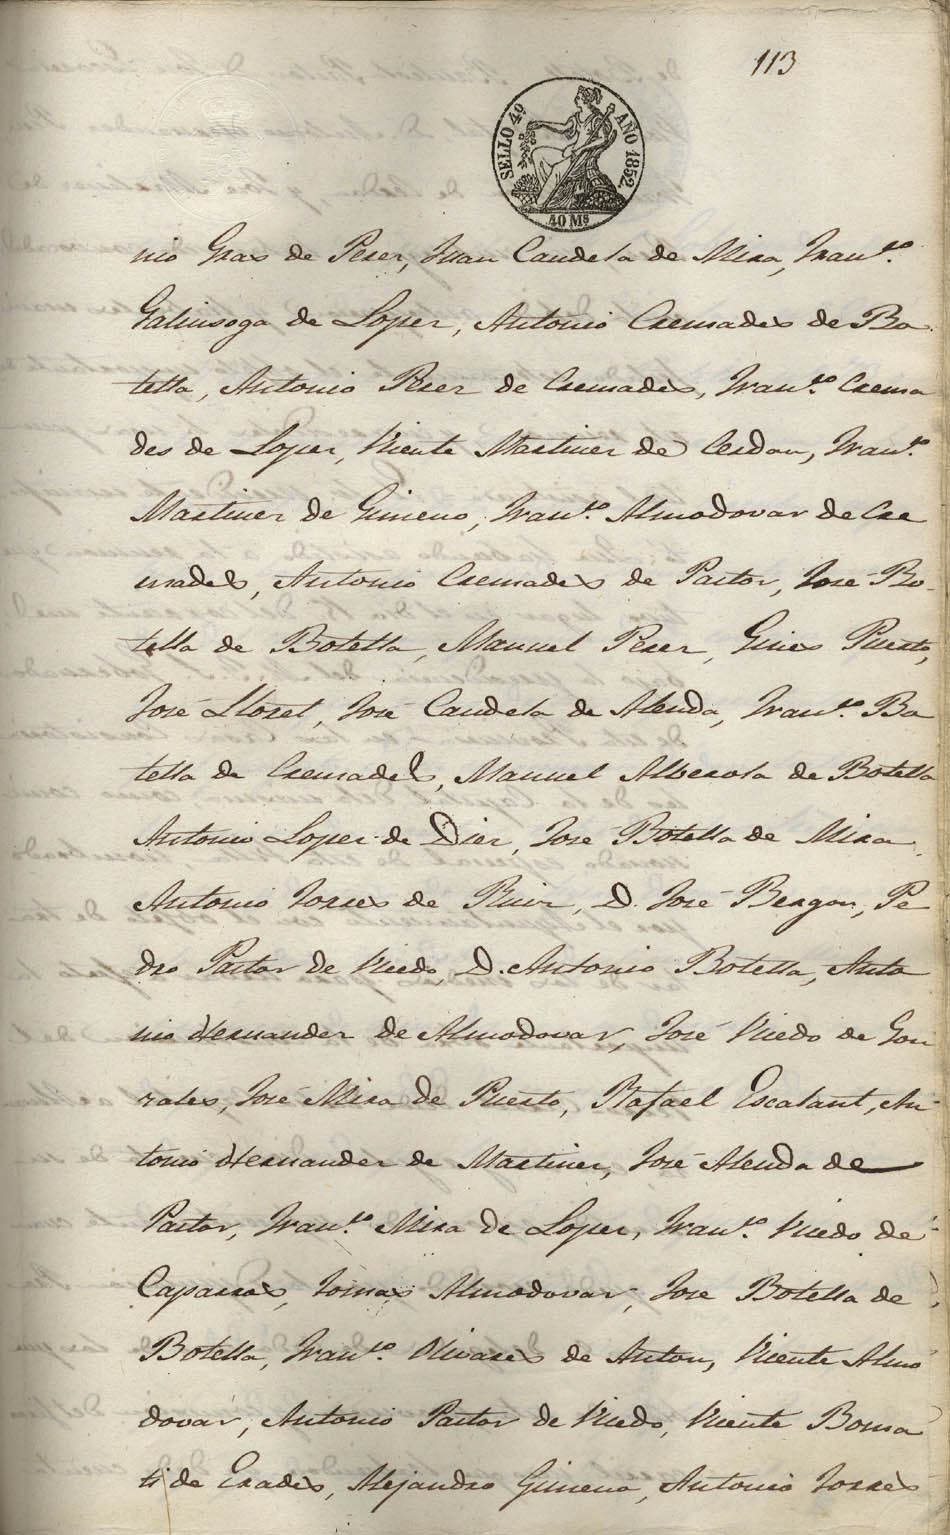 113
SELLO 4º AÑO 1852.
40 Ms
nio Gras de Perez, Juan Candela de Mira, Franco.
Galinsoga de Lopez, Antonio Cremades de Bo
tella, Antonio Perez de Cremades, Franco. Crema
des de Lopez, Vicente Martinez de Cerdan, Franco.
Martinez de Gimeno, Franco. Almodovar de Cre
mades, Antonio Cremades de Pastor, José Bo-
tella de Botella, Manuel Perez, Gines Puerto,
José Lloret, José Candela de Alenda, Franco. Bo
tella de Cremades, Manuel Alberola de Botella
Antonio Lopez de Diez, José Botella de Mira,
Antonio Torres de Ruiz, D. José Bergon, Pe
dro Pastor de Vicedo, D. Antonio Botella, Anto
nio Hernandez de Almodovar, José Vicedo de Gon
zales, José Mira de Puerto, Rafael Escalant, An-
tonio Hernandez de Martinez, José Alenda de
Pastor, Franco. Mira de Lopez, Franco. Vicedo de
Caparros, Tomas Almodovar, José Botella de
Botella, Franco. Olivares de Anton, Vicente Almo
dovar, Antonio Pastor de Vicedo, Vicente Boma
ti de Erades, Alejandro Gimeno, Antonio Torres